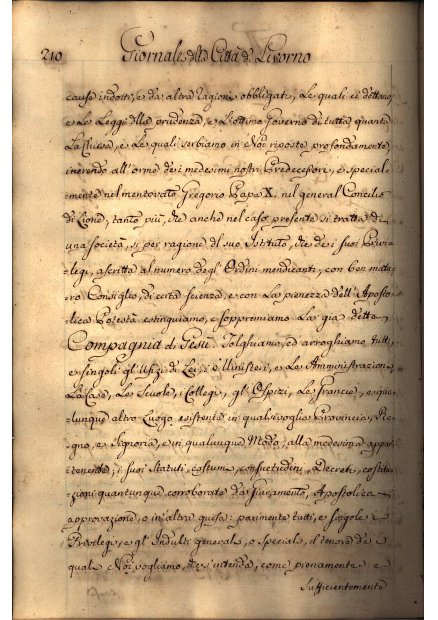 210 Giornale della Città di Livorno
causa indotti, e da altra ragioni obbligati, Le quali ci dettano,
e Le Leggi della prudenza, e L'ottimo Governo di tutta quanta
La Chiesa, e Le quali serbiamo in Noi riposte profondamente,
inerendo all'orme de i medesimi nostri Predecessori, e special-
=mente nel mentovato Gregorio Papa X. nel general Concilio
di Lione, tanto più, che anche nel caso presente si tratta di
una società, sì per ragione del suo Istituto, che de i suoi Privi-
=legi, ascritta al numero degl'Ordini mendicanti, con ben matu-
=ro Consiglio, di certa scienza, e con La pienezza dell'Aposto-
=lica Potestà estinguiamo, e sopprimiamo La già detta
Compagnia di Gesù. Tolghiamo, ed abroghiamo tutti,
e singoli gl'Ufizi di Lei, i Ministeri, e Le Amministrazioni,
La Case, Le Scuole, i Collegi, gl'Ospizi, Le Grancie, e qua-
=lunque altro Luogo esistente in qualsivoglia Provincia, Re-
=gno, e Signoria, e in qualunque Modo alla medesima appar-
=tenente; i suoi Statuti, costumi, consuetudini, Decreti, costitu-
=zioni quantunque corroborate da Giuramento, Apostolica
approvazione, o in altra guisa: parimente tutti, e singole
Privilegi, e gl'Indulti generali, o speciali, il tenore de
quali Noi vogliamo, che s'intenda, come pienamente e
Sufficientemente